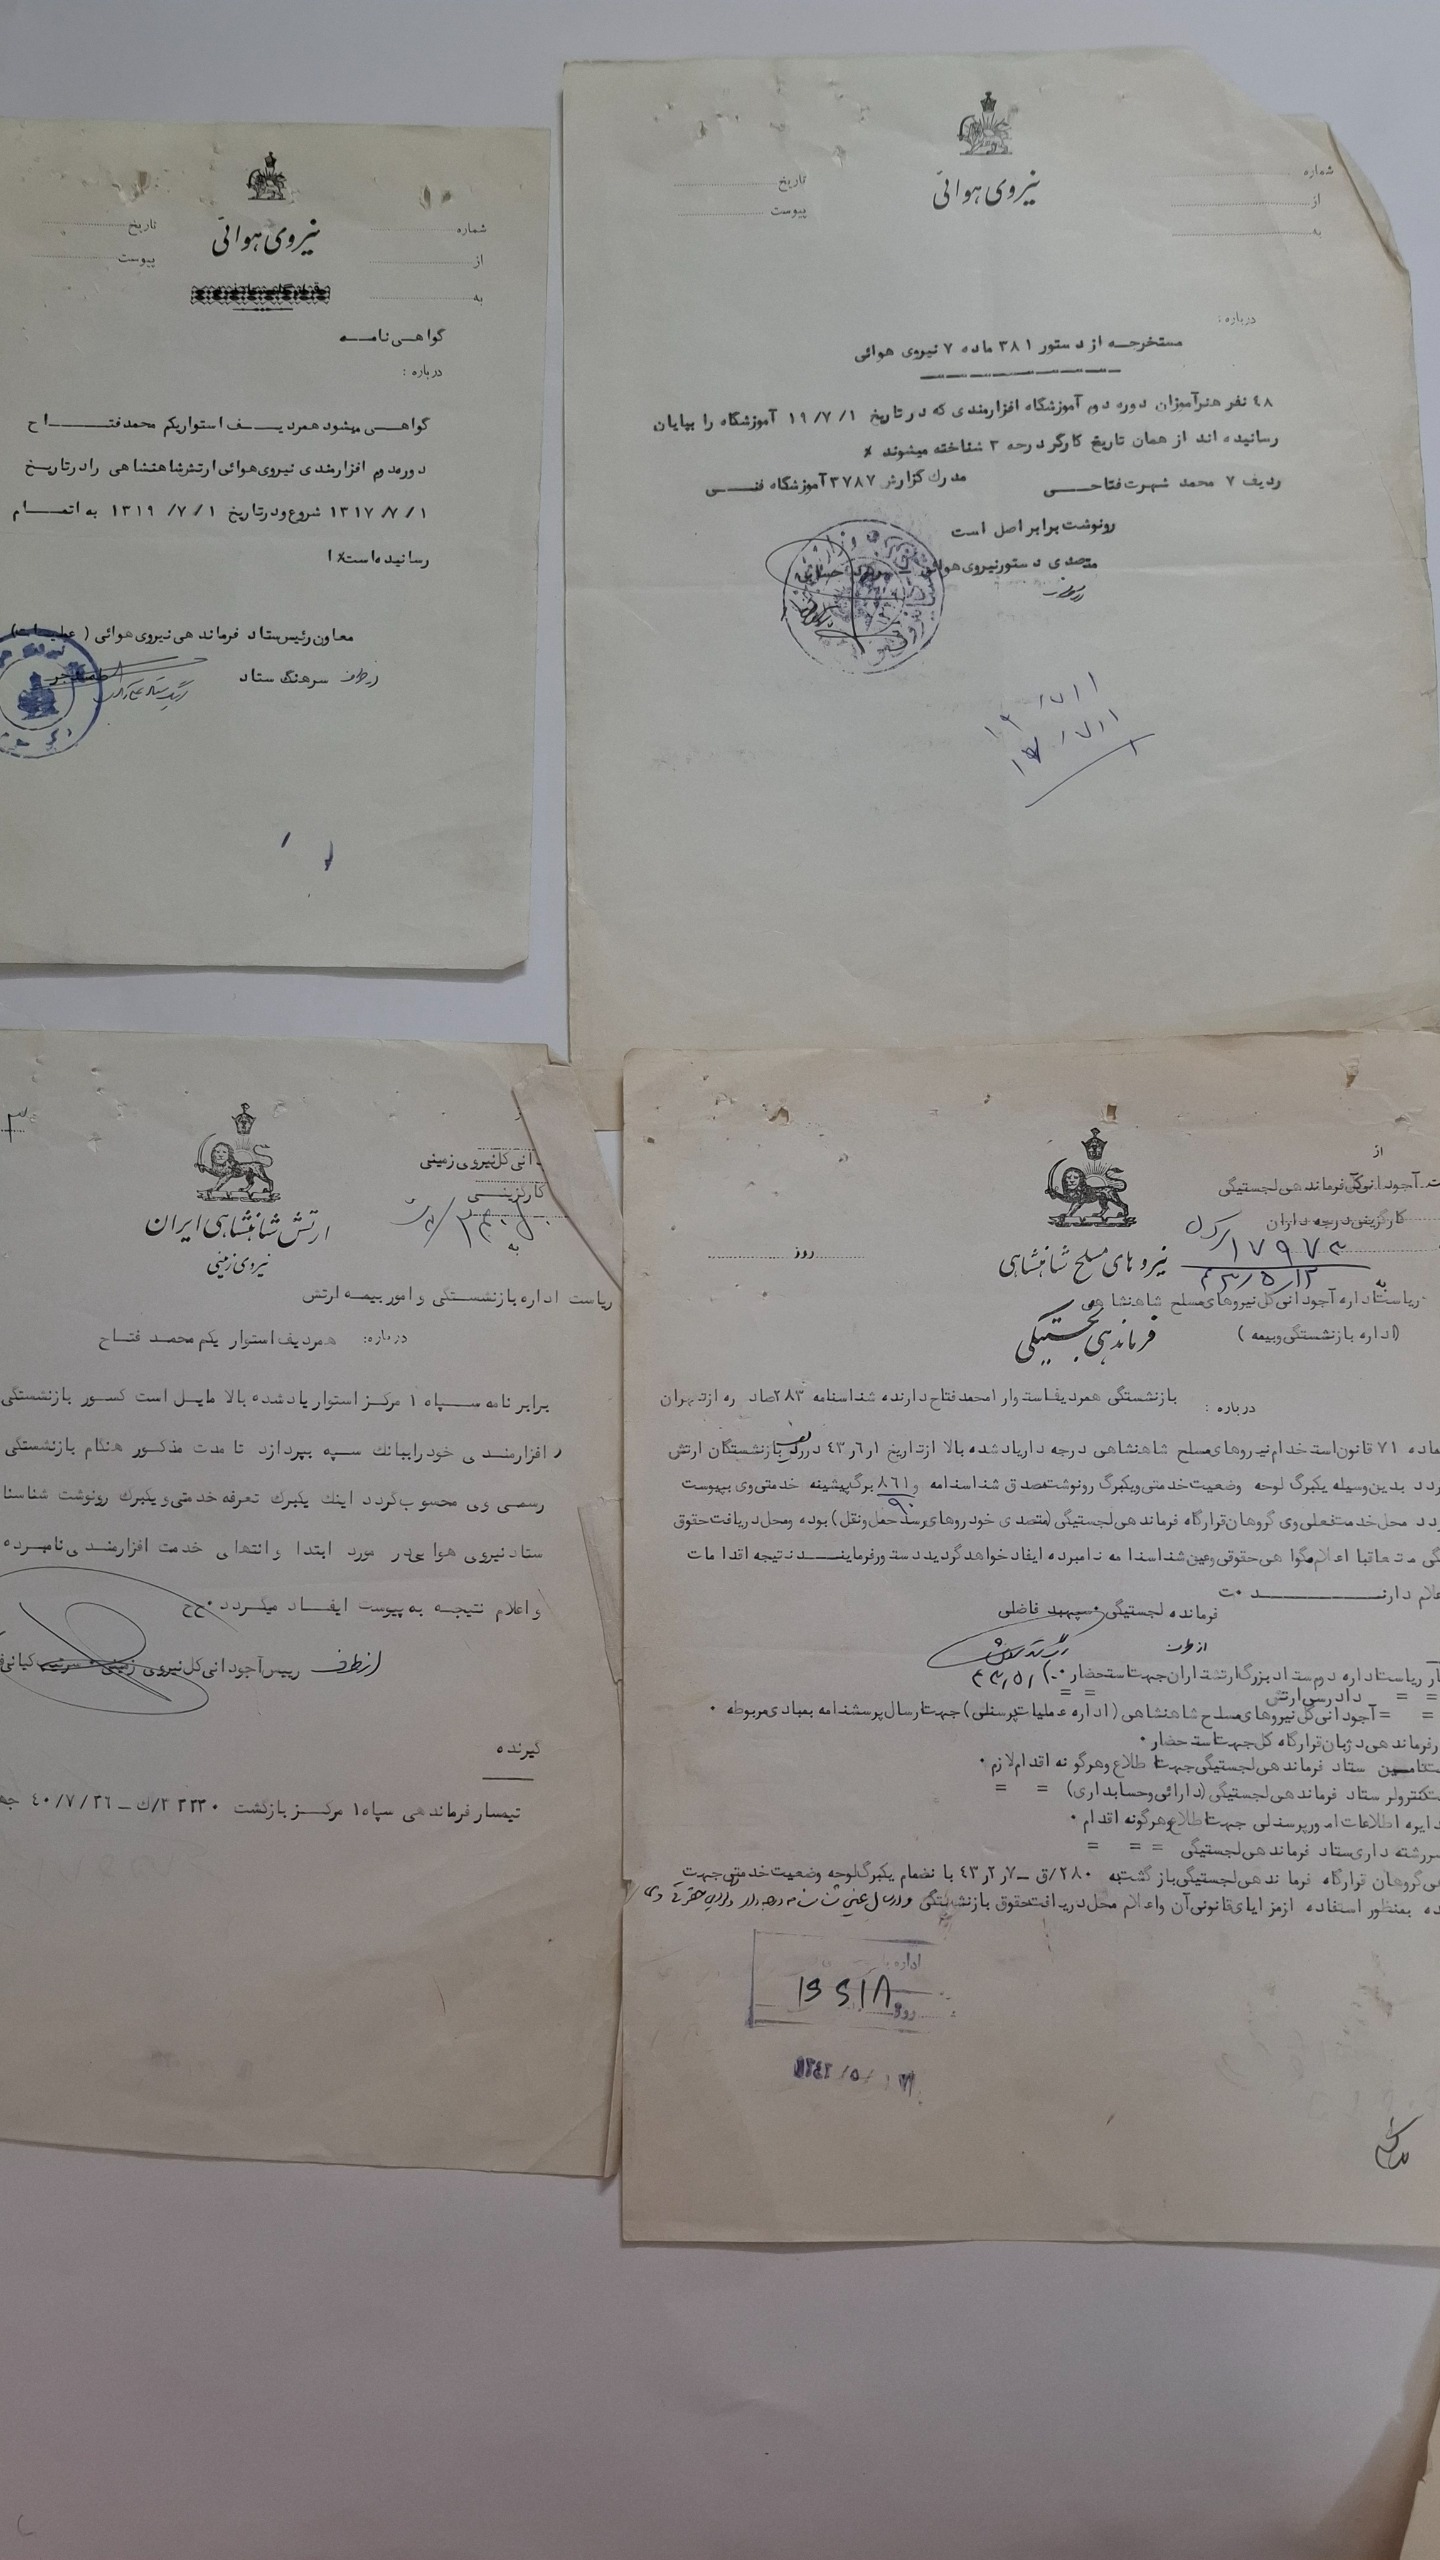 نیروی هوائی
شماره
تاریخ
از
پیوست
به
گواهی نامه
درباره :
گواهی میشود همردیف استوار یکم محمد فتاح
دوره دوم افزارمندی نیروی هوائی ارتش شاهنشاهی را در تاریخ
۱/ ۷/ ۱۳۱۷ شروع و در تاریخ ۱/ ۷/ ۱۳۱۹ به اتمام
رسانیده است
معاون رئیس ستاد فرماندهی نیروی هوائی ( عملیات)
از طرف سرهنگ ستاد
نیروی هوائی
شماره
تاریخ
از
پیوست
به
درباره :
مستخرجه از دستور ۳۸۱ ماده ۷ نیروی هوائی
۴۸ نفر هنرآموزان دوره دوم آموزشگاه افزارمندی که در تاریخ ۱/ ۷/ ۱۹ آموزشگاه را بپایان
رسانیده اند از همان تاریخ کارگر درجه ۳ شناخته میشوند
ردیف ۷ محمد شهرت فتاحی مدرك گزارش ۳۷۸۷ آموزشگاه فنی
رونوشت برابر اصل است
متصدی دستور نیروی هوائی
۱۹/۷/۱
۱۷/۷/۱
ارتش شاهنشاهی ایران
نیروی زمینی
دانی کل نیروی زمینی
کارگزینی
به
ریاست اداره بازنشستگی و امور بیمه ارتش
درباره: همردیف استوار یکم محمد فتاح
برابر نامه سپاه ۱ مرکز استوار یاد شده بالا مایل است کسور بازنشستگی
افزارمندی خود را ببانك سپه بپردازد تا مدت مذکور هنگام بازنشستگی
رسمی وی محسوب گردد اینك یکبرگ تعرفه خدمتی و یکبرگ رونوشت شناسنا
ستاد نیروی هوایی در مورد ابتدا و انتهای خدمت افزارمندی نامبرده
و اعلام نتیجه به پیوست ایفاد میگردد
از طرف رییس آجودانی کل نیروی زمینی سرتیپ
گیرنده
تیمسار فرماندهی سپاه ۱ مرکز بازگشت ۲۳۲۳۰/ك – ۲۶/ ۷/ ۴۰
نیروهای مسلح شاهنشاهی
فرماندهی لجستیکی
از
آجودانی کل فرماندهی لجستیکی
کارگزینی درجه داران
۱۷۹۷۳
۴۳/۵/۱۲
روز
به
ریاست اداره آجودانی کل نیروهای مسلح شاهنشاهی
(اداره بازنشستگی و بیمه )
درباره : بازنشستگی همردیف استوار ۱ محمد فتاح دارنده شناسنامه ۲۸۳ صادره از تهران
ماده ۷۱ قانون استخدام نیروهای مسلح شاهنشاهی درجه دار یاد شده بالا از تاریخ ۱ر۶ر۴۳ در ردیف بازنشستگان ارتش
بدین وسیله یکبرگ لوحه وضعیت خدمتی و یکبرگ رونوشت مصدق شناسنامه و برگ پیشینه خدمتی وی بپیوست
محل خدمت فعلی وی گروهان قرارگاه فرماندهی لجستیکی (متصدی خودروهای رسد حمل و نقل) بوده و محل دریافت حقوق
متعاقبا اعلام گواهی حقوقی و عین شناسنامه نامبرده ایفاد خواهد گردید دستور فرمایند نتیجه اقدامات
اعلام دارند
فرمانده لجستیکی سپهبد فاضلی
از طرف
ریاست اداره دوم ستاد بزرگ ارتشتاران جهت استحضار
= = دادرسی ارتش = =
= = آجودانی کل نیروهای مسلح شاهنشاهی (اداره عملیات پرسنلی) جهت ارسال پرسشنامه بمبادی مربوطه
فرماندهی دژبان قرارگاه کل جهت استحضار
ستاد فرماندهی لجستیکی جهت اطلاع و هرگونه اقدام لازم
کنترولر ستاد فرماندهی لجستیکی (دارائی و حسابداری) = =
دایره اطلاعات امور پرسنلی جهت اطلاع و هرگونه اقدام
سررشته داری ستاد فرماندهی لجستیکی = = =
گروهان قرارگاه فرماندهی لجستیکی بازگشت به ۲۸۰/ق – ۷ر۲ر۴۳ با انضمام یکبرگ لوحه وضعیت خدمتی جهت
بمنظور استفاده از مزایای قانونی آن و اعلام محل دریافت حقوق بازنشستگی
اداره
روز